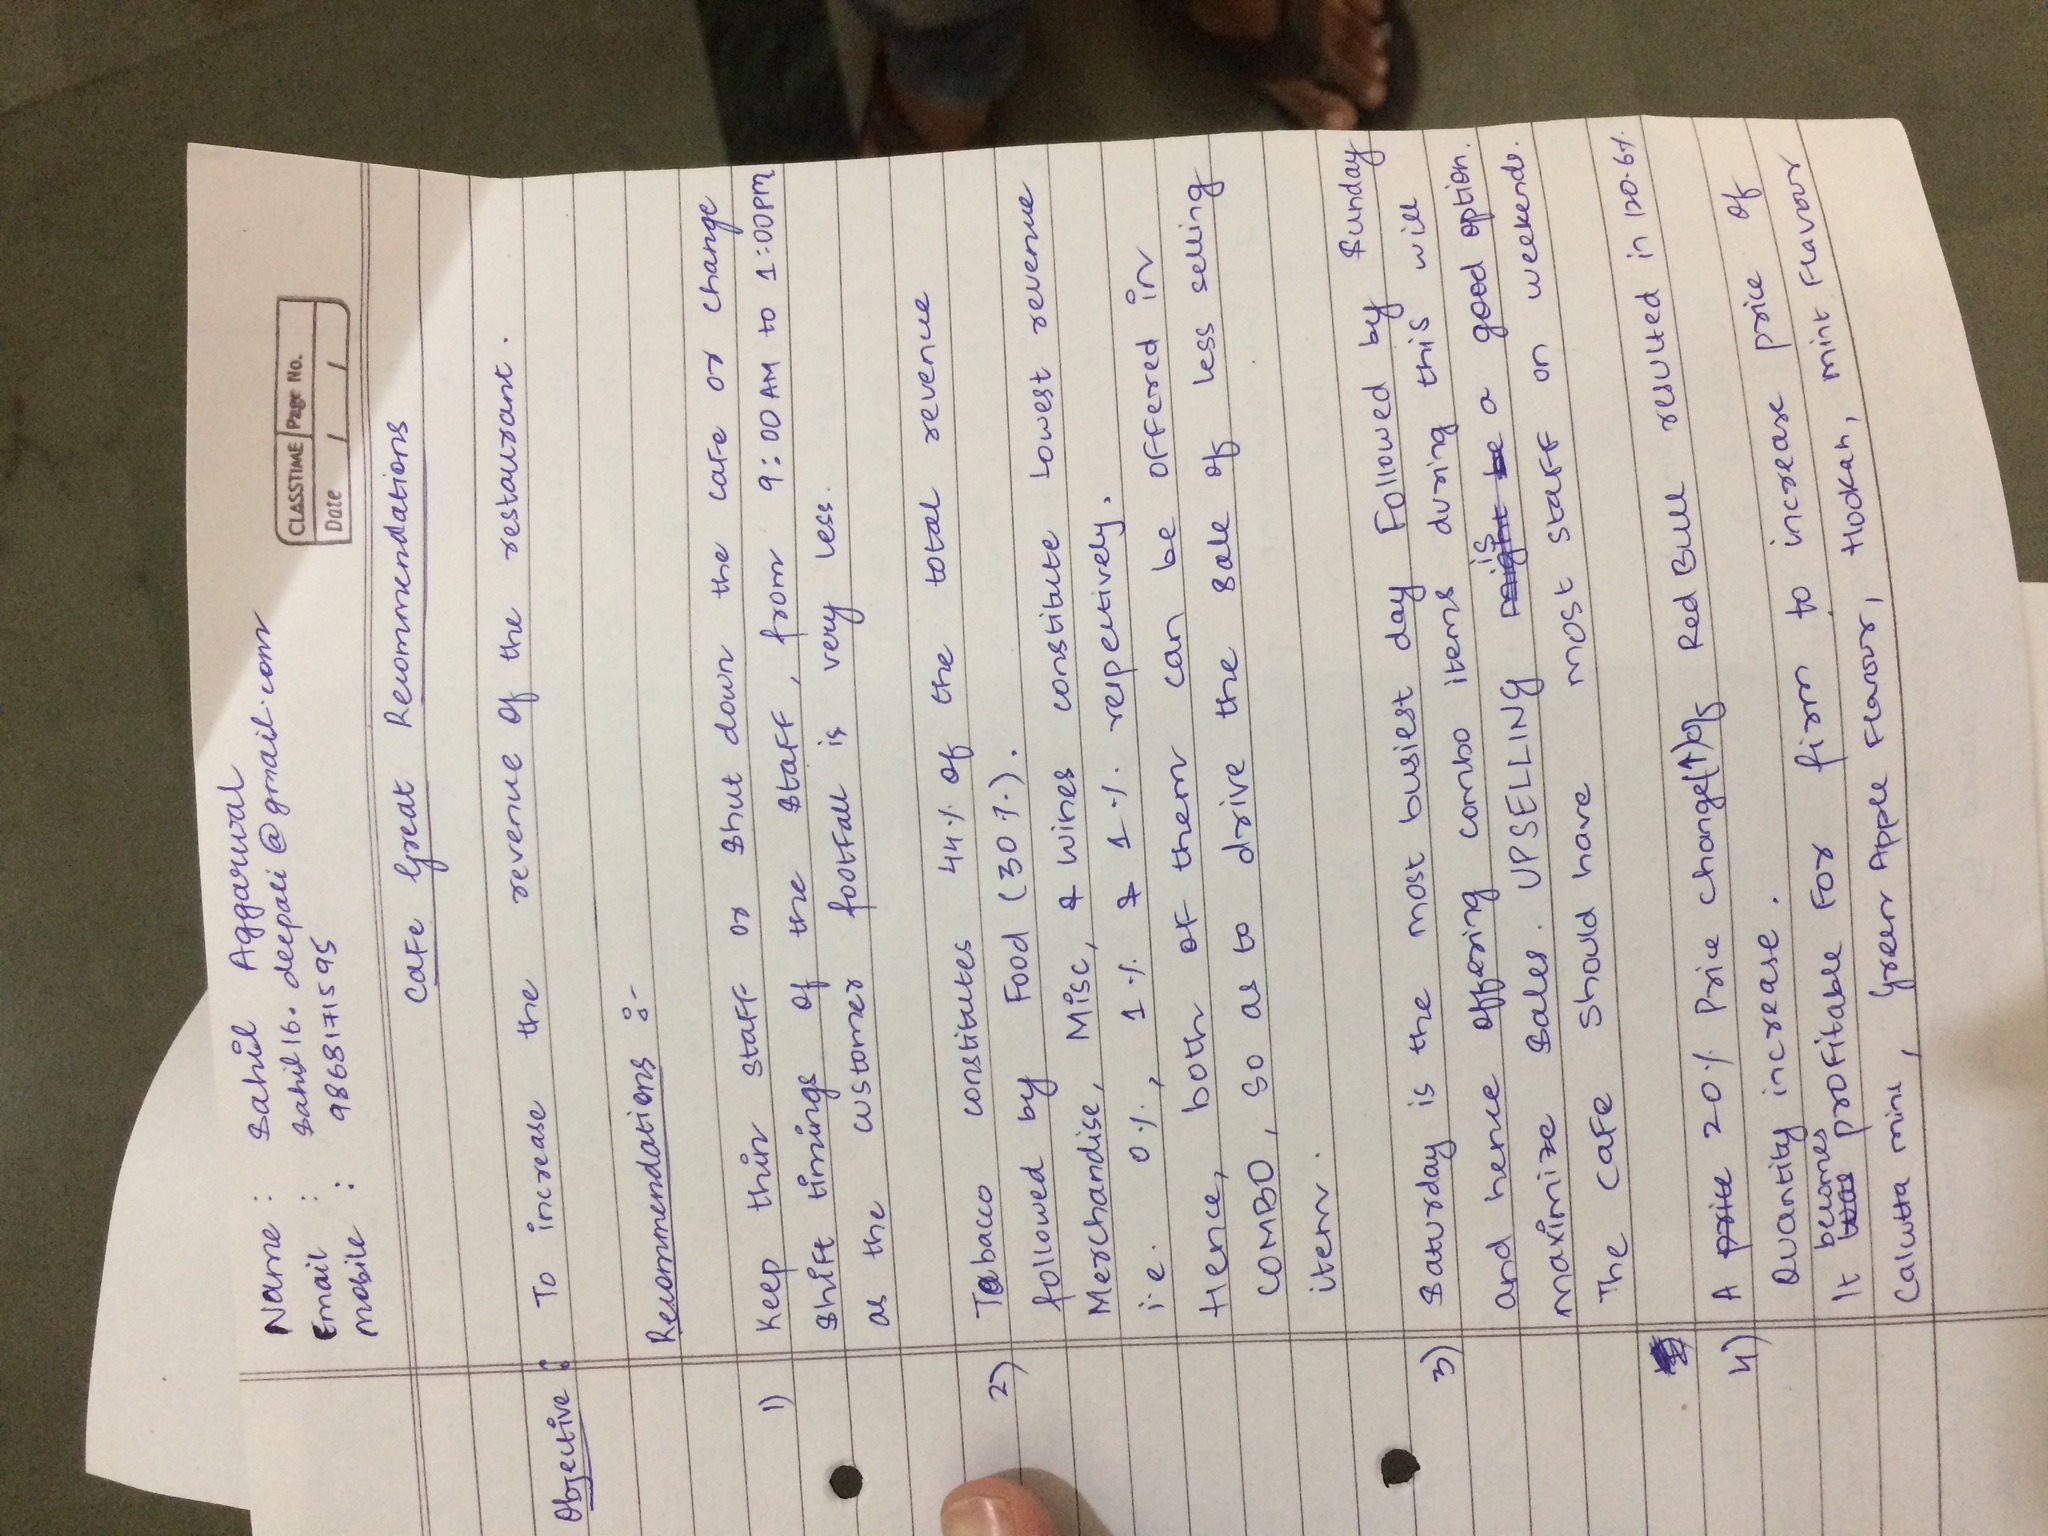 CLASSTIME Page No.
Date / /
Name : Sahil Aggarwal
Email : Sahil16.deepali@gmail.com
Mobile : 9868171595
Cafe Great Recommendations
Objective : To increase the revenue of the restaurant.
Recommendations :-
1) Keep thin staff or shut down the cafe or change
shift timings of the staff, from 9:00 AM to 1:00PM
as the customer footfall is very less.
2) Tobacco constitutes 44% of the total revenue
followed by Food (30%).
Merchandise, Misc, & wines constitute lowest revenue
i.e. 0%, 1% & 1% respectively.
Hence, both of them can be offered in
COMBO, so as to drive the sale of less selling
item.
3) Saturday is the most busiest day Followed by Sunday
and hence offering combo items during this will
maximize sales. UPSELLING is a good option.
The cafe should have most staff on weekends.
4) A price 20% Price change(↑) of Red Bull resulted in 120.6%
Quantity increase.
It becomes profitable For firm to increase price of
Calcutta mint, Green Apple Flavour, Hookah, mint Flavour